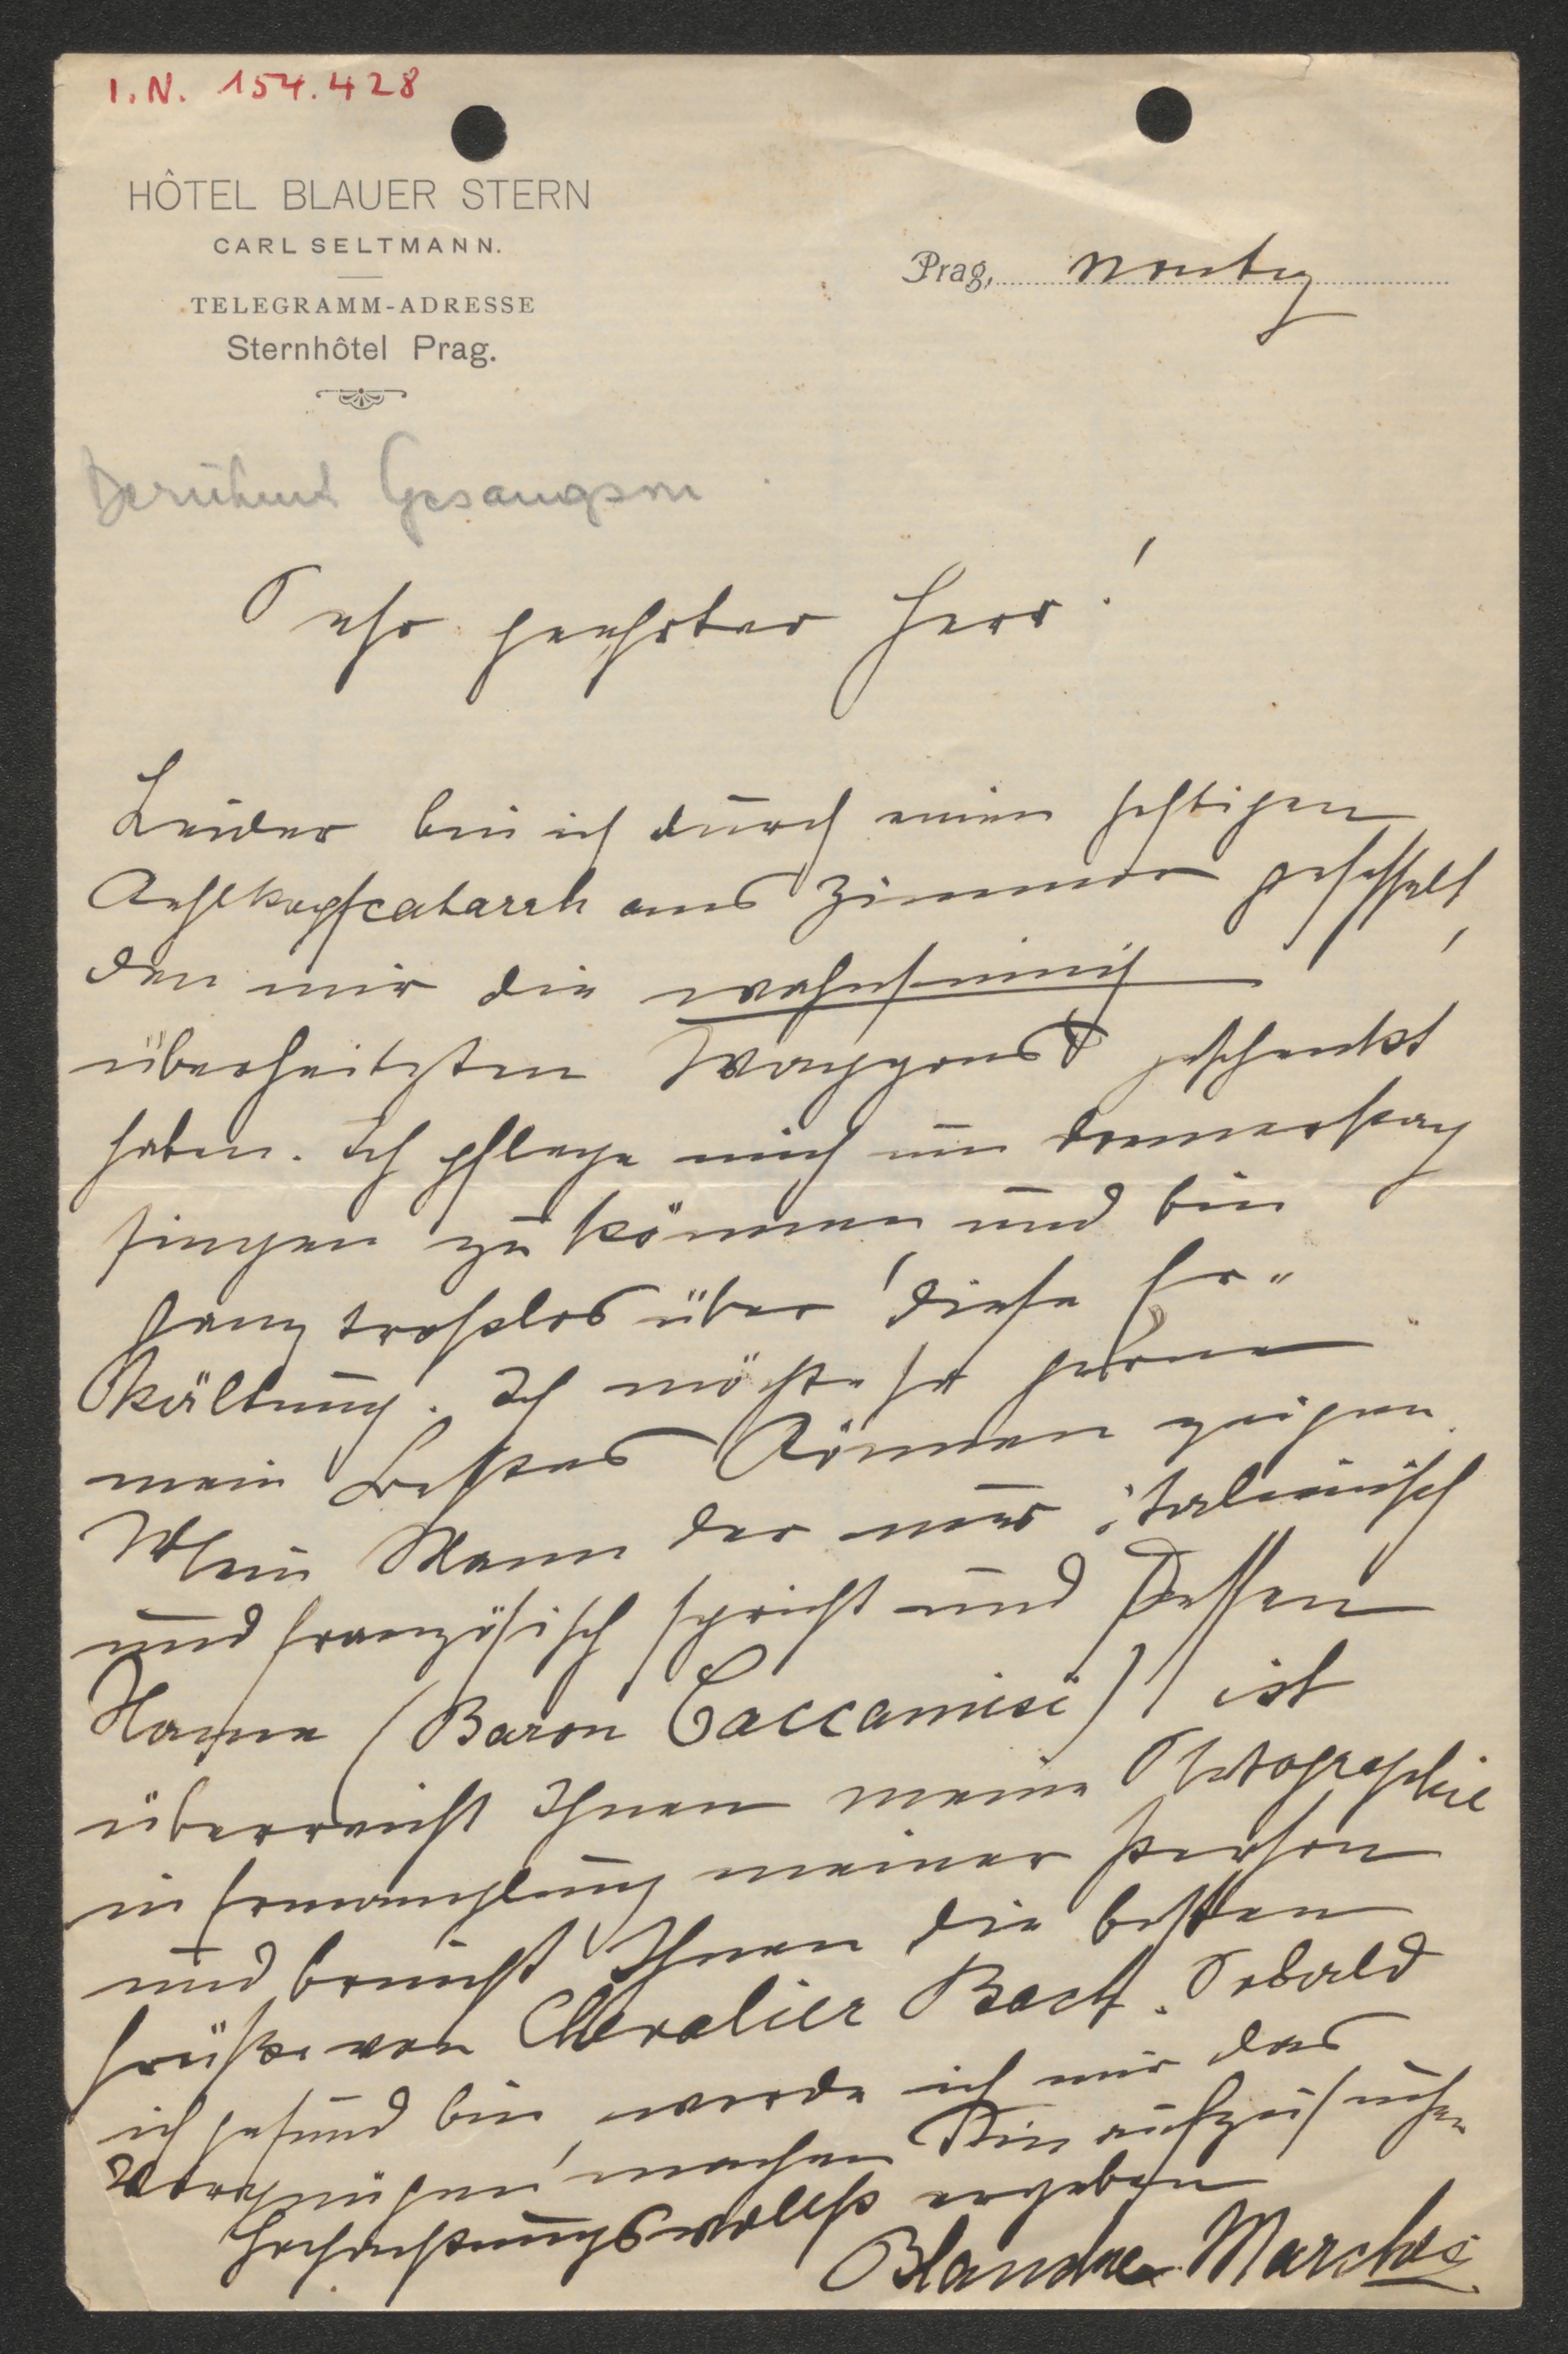 I.N. 154.428
HÔTEL BLAUER STERN
CARL SELTMANN.
TELEGRAMM-ADRESSE
Sternhôtel Prag.
Prag, Montag
Berühmt Gesangsm
Sehr geehrter Herr!
Leider bin ich durch einen heftigen
Kehlkopfcatarrh ans Zimmer gefesselt,
den mir die wahnsinnig
überheitzten Waggons geschenkt
haben. Ich pflege mich um Donnerstag
singen zu können und bin
ganz trostlos über diese Er-
kältung. Ich möchte so gerne
mein Bestes Können zeigen.
Mein Mann der nur italienisch
und französisch spricht und dessen
Name (Baron Caccamisi) ist
überreicht Ihnen meine Photographie
in Ermanglung meiner Person
und bringt Ihnen die besten
Grüße von Chevalier Bach. Sobald
ich gesund bin, werde ich mir das
Vergnügen machen Sie aufzusuchen
Hochachtungsvollst ergeben
Blanche Marchesi